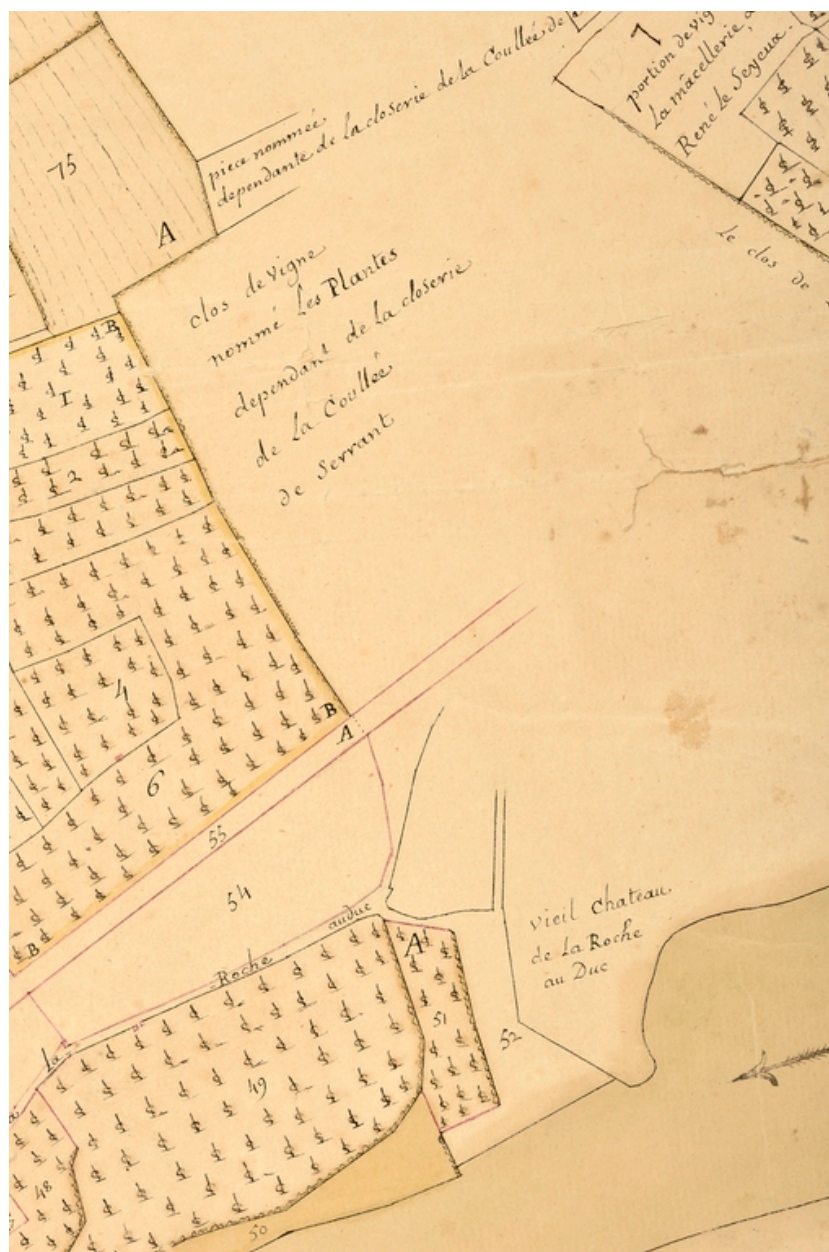 75
A
piece nommée
dependante de la closerie de la Coullée de
7
portion de vig
La mâcellerie
René Le Seyeux.
Le clos de
clos de vigne
nommé Les Plantes
dependant de la closerie
de La Coullée
de Serrant
B
1
2
4
6
B
A
B
55
54
La Roche au duc
A
51
52
49
48
50
vieil Chateau
de La Roche
au Duc